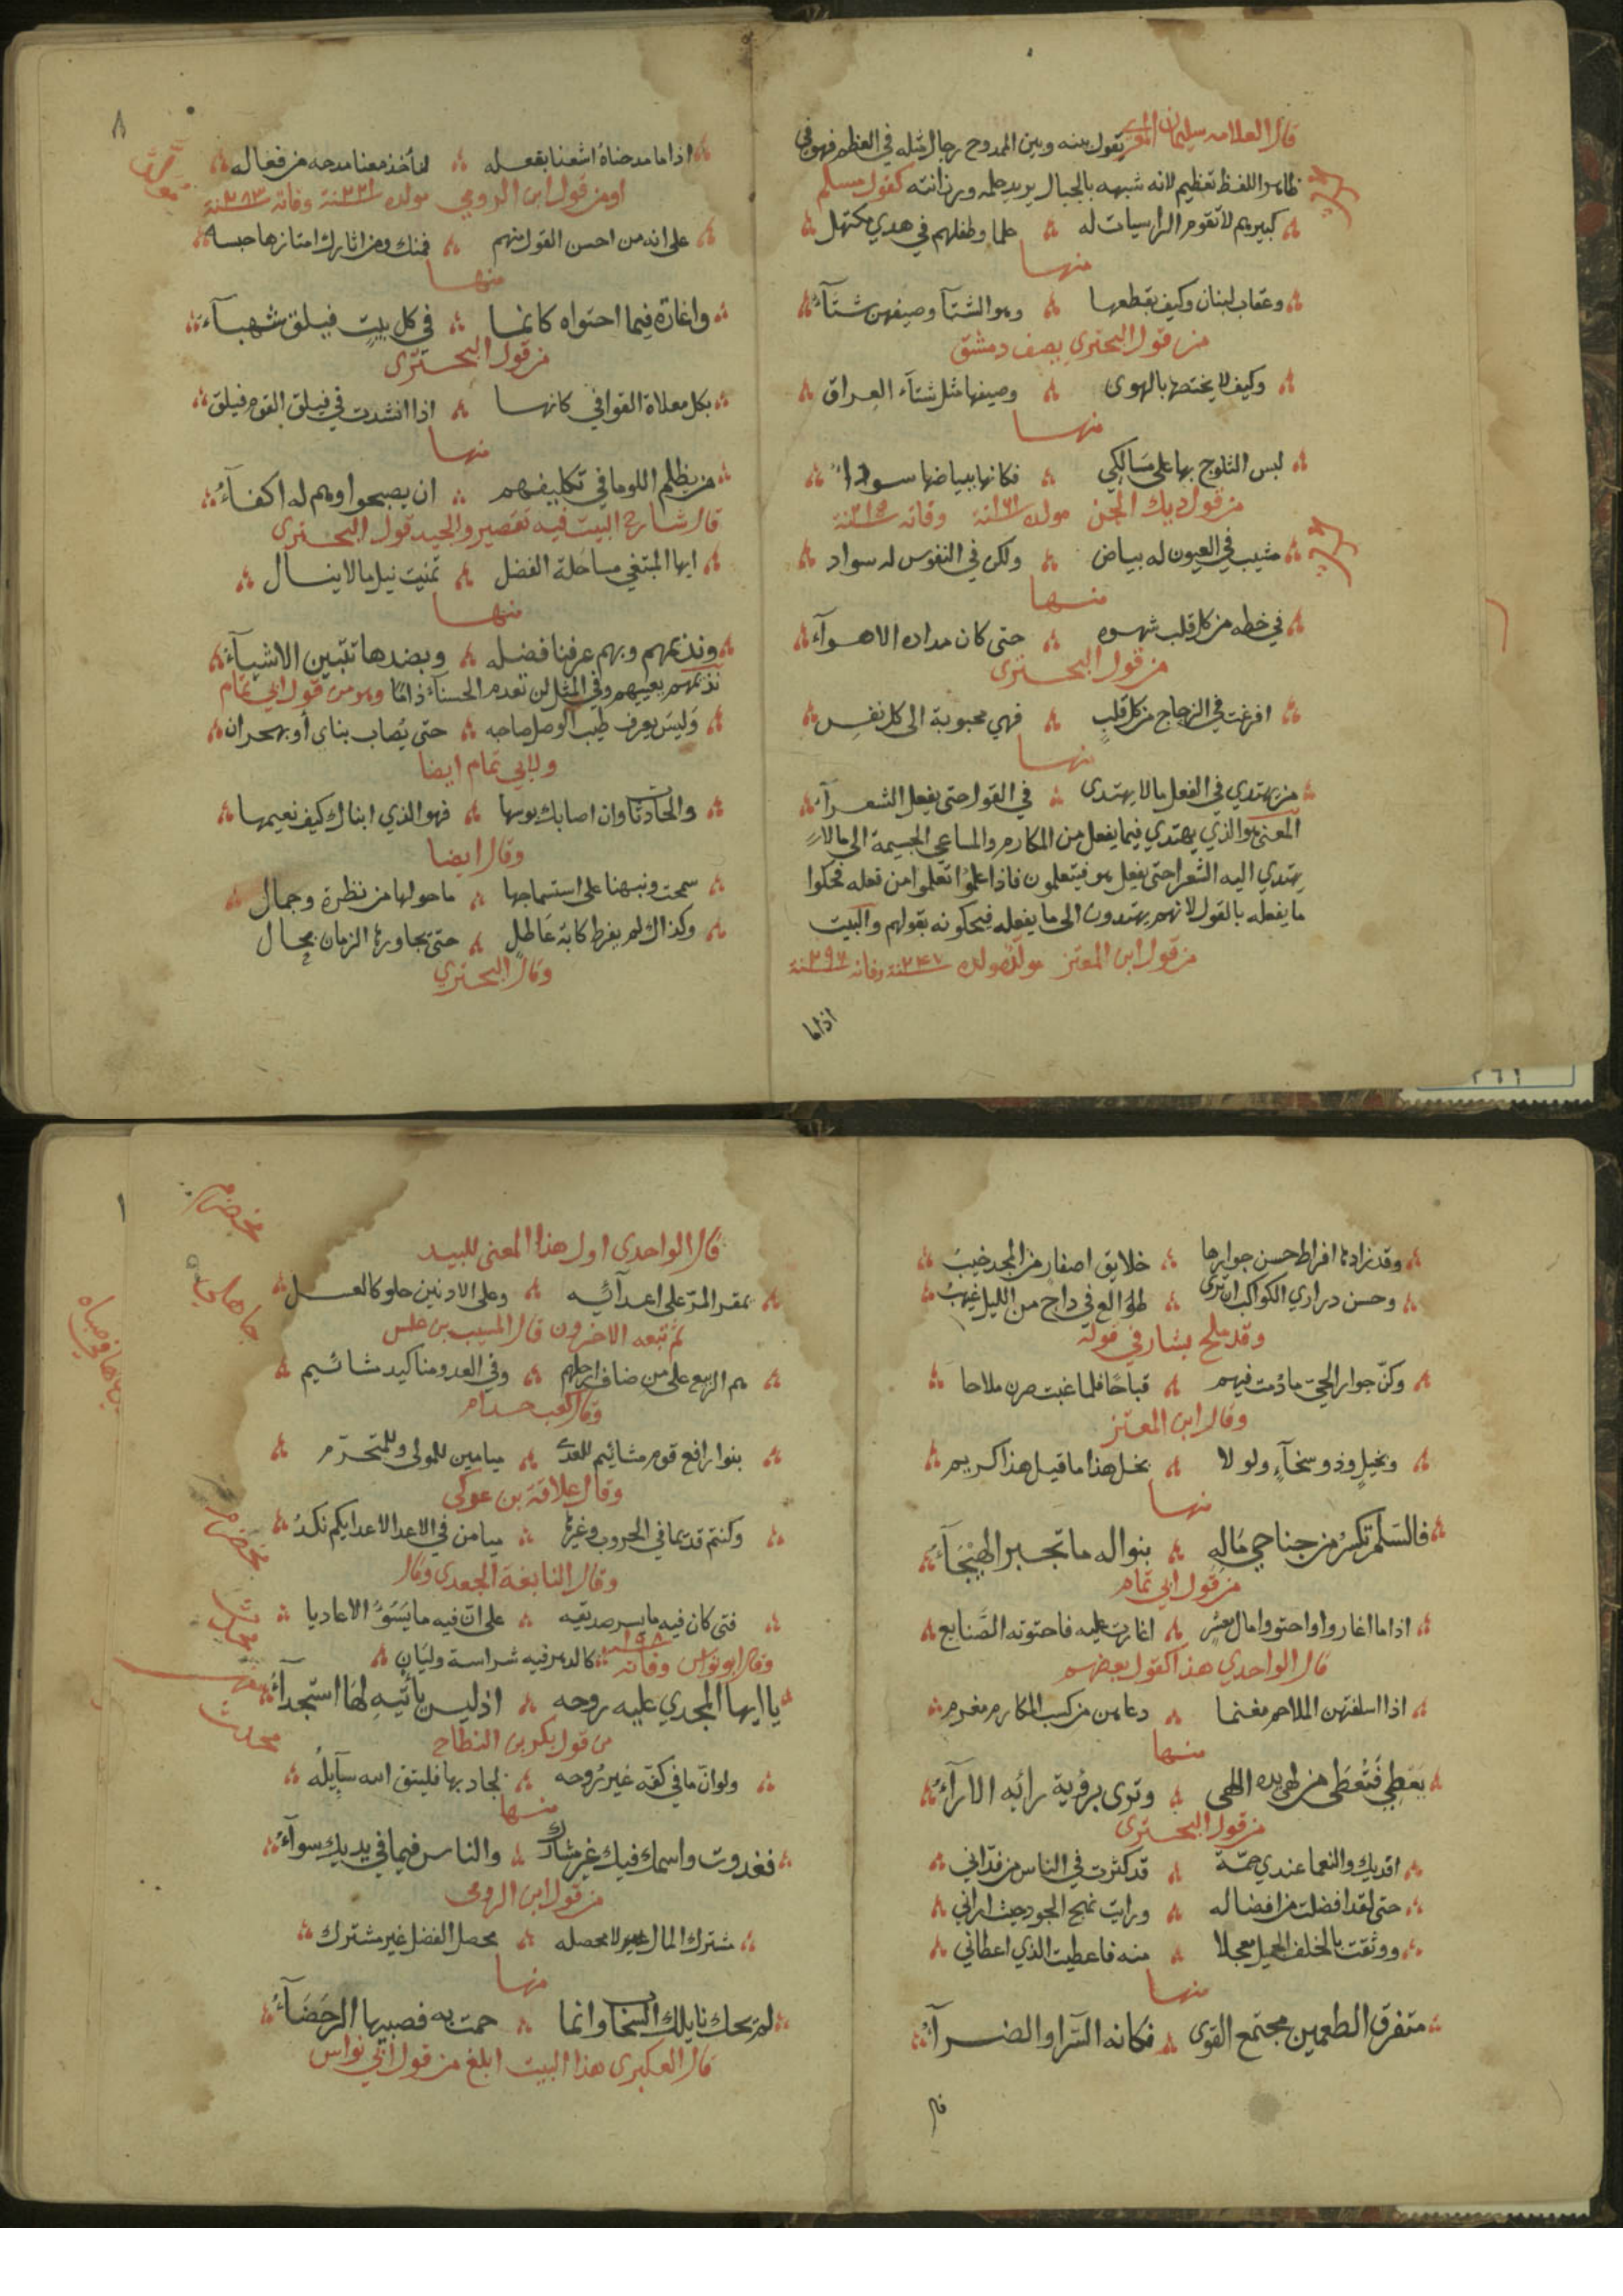 قال العلامه سليمان المعري يقول بينه وبين الممدوح رجال مثله في العظم فهو في
ظاهر اللفظ تعظيم لانه شبهه بالجبال يريد حلمه ورزانته كقول مسلم
كبيرهم لا تقوم الراسيات له حلما وطفلهم في هدي مكتهل
منها
وعقاب لبنان وكيف بقطعها وهو الشتآ وصيفهن شتآء
من قول البحتري يصف دمشق
وكيف لا يختصها بالهوى وصيفها مثل شتآء العراق
منها
لبس الثلوج بها على مسالكي فكانها ببياضها سوداء
من قول ديك الجن مولده سنة ١٦١ وفاته سنة ٢١٥
مشيب في العيون له بياض ولكن في النفوس له سواد
منها
في خطه من كل قلب شهوه حتى كان مداده الاهوآء
من قول البحتري
افرغت في الزجاج من كل قلب فهي محبوبة الى كل نفس
منها
من يهتدي في الفعل ما لا يهتدى في القول حتى يفعل الشعرآء
المعنى هو الذي يهتدي فيما يفعل من المكارم والمساعي الجسيمة الى ما لا
يهتدي اليه الشعرا حتى يفعل هو فيتعلمون فاذا علموا تعلموا من فعله فحكوا
ما يفعله بالقول لانهم يهتدون الى ما يفعله فيحكونه بقولهم والبيت
من قول ابن المعتز مولده سنة ٢٤٧ وفاته سنة ٢٩٦
اذا ما
٨
اذا ما مدحناه اشعنا بفعله لنأخذ معنا مدحه من فعاله
او من قول ابن الرومي مولده سنة ٢٢١ وفاته سنة ٢٨٣
على انه من احسن القول منهم فمنك ومن اثارك امتازها حبسه
منها
واغارة فيما احتواه كانما في كل بيت فيلق شهبآء
من قول البحتري
بكل معلاة القوافي كانها اذا انشدت في فيلق القوم فيلق
منها
من يظلم اللوما في تكليفهم ان يصبحوا وهم له اكفآء
قال شارح البيت فيه تقصير والجيد قول البحتري
ايها المبتغي مساجلة الفضل تمنيت نيل ما لا ينال
منها
ونذيمهم وبهم عرفنا فضله وبضدها تتبين الاشيآء
نذيمهم بعيبهم وفي المثل لن تعدم الحسنآء ذاما وهو من قول ابي تمام
وليس يعرف طيب الوصل صاحبه حتى يصاب بناى أو بهجران
ولابي تمام ايضا
والحادثات وان اصابك بوسها فهو الذي انباك كيف نعيمها
وقال ايضا
سمحت ونبهنا على استسماجها ما حولها من نظرة وجمال
وكذاك لم يفرط كابة عاطل حتى يجاورها الزمان بحال
وقال البحتري
وقد زادها افراط حسن جوارها خلايق اصفار من المجد خيب
وحسن دراري الكواكب ان ترى طوالع في داج من الليل غيهب
وقد ملح بشار في قوله
وكن جوار الحي ما دمت فيهم قباحا فلما غبت صرن ملاحا
وقال ابن المعتز
وبخيل وذو سخآء ولولا بخل هذا ما قيل هذا كريم
منها
فالسلم تكسر من جناحي ماله بنواله ما تجبر الهيجآء
من قول ابي تمام
اذا ما اغاروا واحتووا مال معشر اغارت عليه فاحتوته الصنايع
قال الواحدي هذا كقول بعضهم
اذا اسلفتهن الملاحم مغنما دعاهن من كسب المكارم مغرم
منها
يعطي فتعطى من لهى يده اللهى وترى برؤية رائه الارآء
من قول البحتري
افديك والنعما عندي جمة قد كثرت في الناس من فدائي
حتى لقد افضلت من افضاله ورايت نهج الجود حيث اراني
ووثقت بالخلف الجميل معجلا منه فاعطيت الذي اعطاني
منها
متفرق الطعمين مجتمع القوى فكانه السرا والضرآء
قال
قال الواحدى اول هذا المعنى للبيد
ممقر المر على اعدآئه وعلى الادنين حلو كالعسل
ثم تبعه الاخرون قال المسيب بن علس
هم الربيع على من ضاف ارحلهم وفي العدو مناكيد مشائيم
وقال كعب
بنو رافع قوم مشائيم للعدى ميامين للمولى وللمتحرم
وقال علاقة بن عوكى
وكنتم قديما في الحروب وغيرها ميامن في الاعدا لاعدايكم نكد
وقال النابغة الجعدى وقال
فتى كان فيه ما يسر صديقه على ان فيه ما يسوء الاعاديا
وقال ابو نواس وفاته ١٩٨ كالدهر فيه شراسة وليان
يا ايها المجدي عليه روحه اذ ليس يأتيه لها استجدآء
من قول بكر بن النطاح
ولو ان ما في كفه غير روحه لجاد بها فليتق الله سآيله
منها
فغدوت واسمك فيك غير مشارك والناس فيما في يديك سوآء
من قول ابن الرومي
مشترك المال لا محصله محصل الفضل غير مشترك
منها
لم تحك نايلك السحاب وانما حمت به فصبيبها الرحضآء
قال العكبرى هذا البيت ابلغ من قول ابي نواس